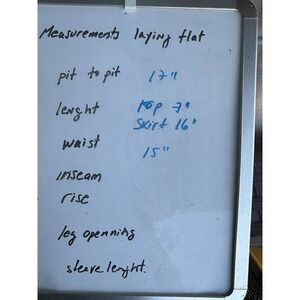 Measurements laying flat
pit to pit 17"
lenght top 7"
skirt 16"
waist 15"
inseam
rise
leg openning
sleave lenght.